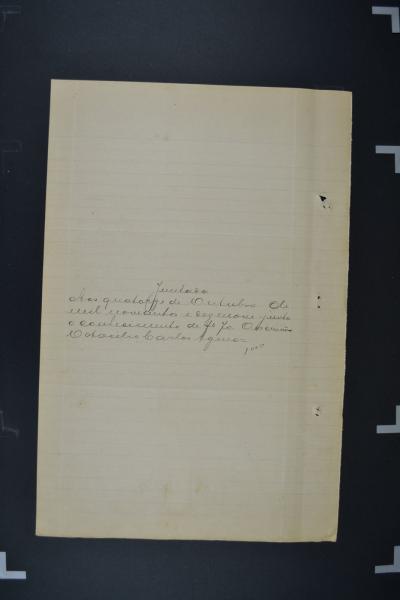 Juntada
Aos quatorze de Outubro de
mil novecentos e dezenove junto
o conhecimento de fs O escrivão
Carlos